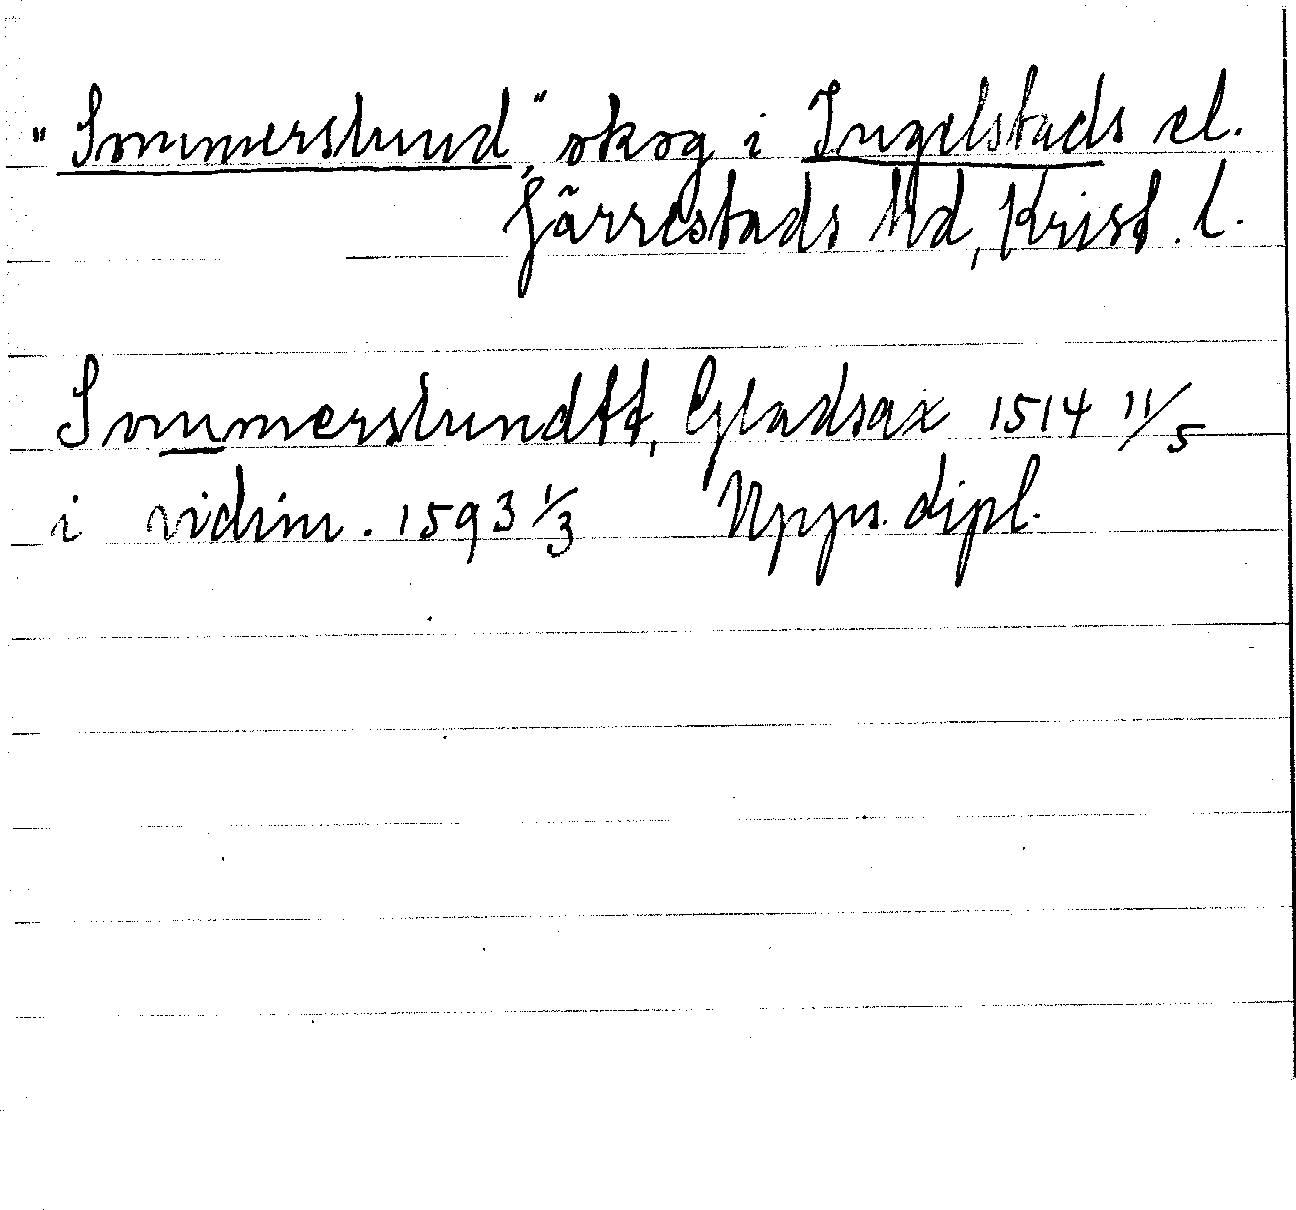 "Sommerslund", skog i Ingelstads el.
Järrestads hd, Krist. l.
Sommerslundtt, Gladsax 1514 11/5
i vidim. 1593 1/3 Uppn. dipl.